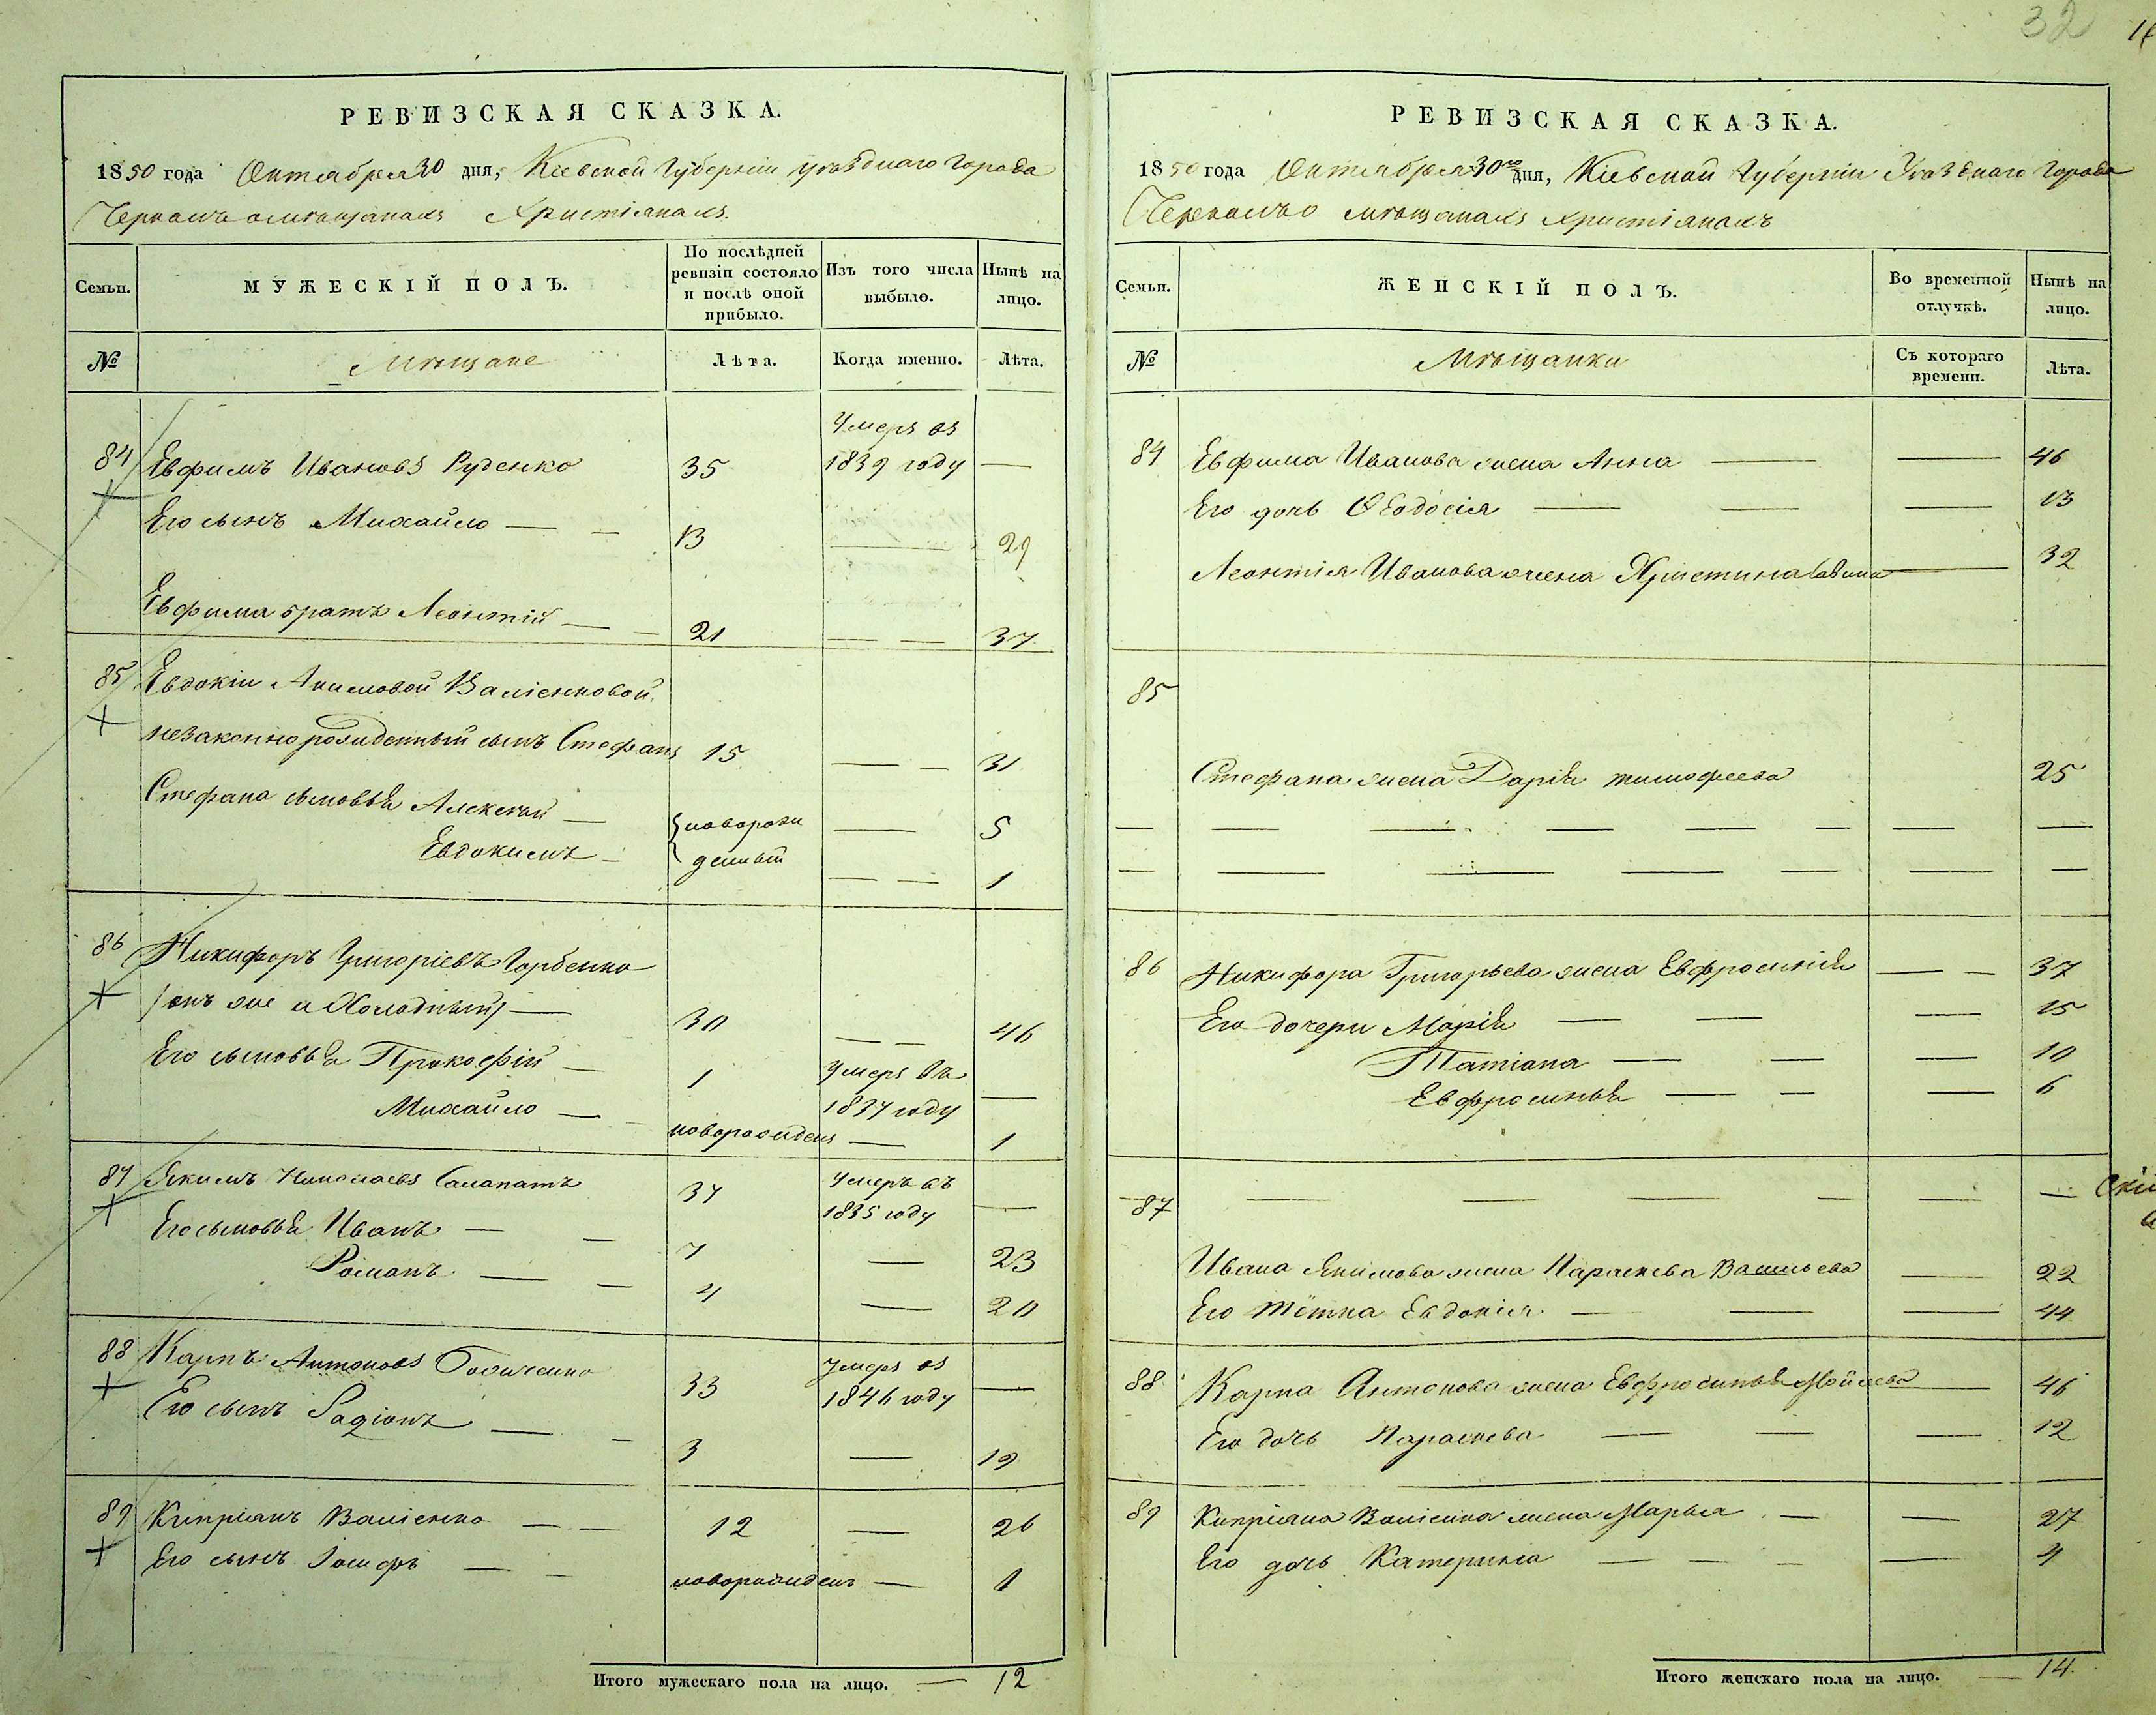 32
РЕВИЗСКАЯ СКАЗКА.
1850 года Октября 30 дня, Кіевской Губерніи уѣзднаго Города
Черкасъ о мѣщанахъ Христіанахъ.
Семьи. МУЖЕСКІЙ ПОЛЪ. По послѣдней ревизіи состояло и послѣ оной прибыло. Изъ того числа выбыло. Нынѣ на лицо.
№ Мѣщане Лѣта. Когда именно. Лѣта.
84 Евфимъ Ивановъ Руденко 35 Умеръ въ 1839 году —
Его сынъ Михайло — — 13 — 29
Евфима братъ Леонтій — — 21 — — 37
85 Евдокіи Акимовой Валіенковой
незаконнорожденный сынъ Стефанъ 15 — — 31
Стефана сыновья Алексѣй — новорож — 5
Евдокимъ — денный — — 1
86 Никифоръ Григоріевъ Горбенко
(онъ же и Холодный) — 30 — — 46
Его сыновья Прокофій — 1 Умеръ въ 1837 году —
Михайло — новорожденъ — 1
87 Якимъ Николаевъ 37 Умеръ въ 1835 году —
Его сыновья Иванъ — — 7 — 23
Романъ — — 4 — 20
88 Карпъ Антоновъ 33 Умеръ въ 1846 году —
Его сынъ Радіонъ — — 3 — 19
89 Кипріянъ Валіенко — — 12 — 26
Его сынъ Іосифъ — — новорожденъ — 1
Итого мужескаго пола на лицо. — 12
РЕВИЗСКАЯ СКАЗКА.
1850 года Октября 30го дня, Кіевской Губерніи Уѣзднаго Города
Черкасъ о мѣщанахъ Христіанахъ
Семьи. ЖЕНСКІЙ ПОЛЪ. Во временной отлучкѣ. Нынѣ на лицо.
№ Мѣщанки Съ котораго времени. Лѣта.
84 Евфима Иванова жена Анна — — 46
Его дочь Ѳеодосія — — — 13
Леонтія Иванова жена Христина Савина — 32
85
Стефана жена Дарія Тимофеева 25
86 Никифора Григорьева жена Евфросинія — — 37
Его дочери Марія — — — 15
Татіана — — — 10
Евфросинья — — — 6
87 — — — — — —
Ивана Якимова жена Параскева Васильева — 22
Его тётка Евдокія — — — 44
88 Карпа Антонова жена Евфросинья Мойсеева — 46
Его дочь Параскева — — — 12
89 Кипріяна Валіенка жена Марья — — 27
Его дочь Катерина — — — — 4
Итого женскаго пола на лицо. — 14.